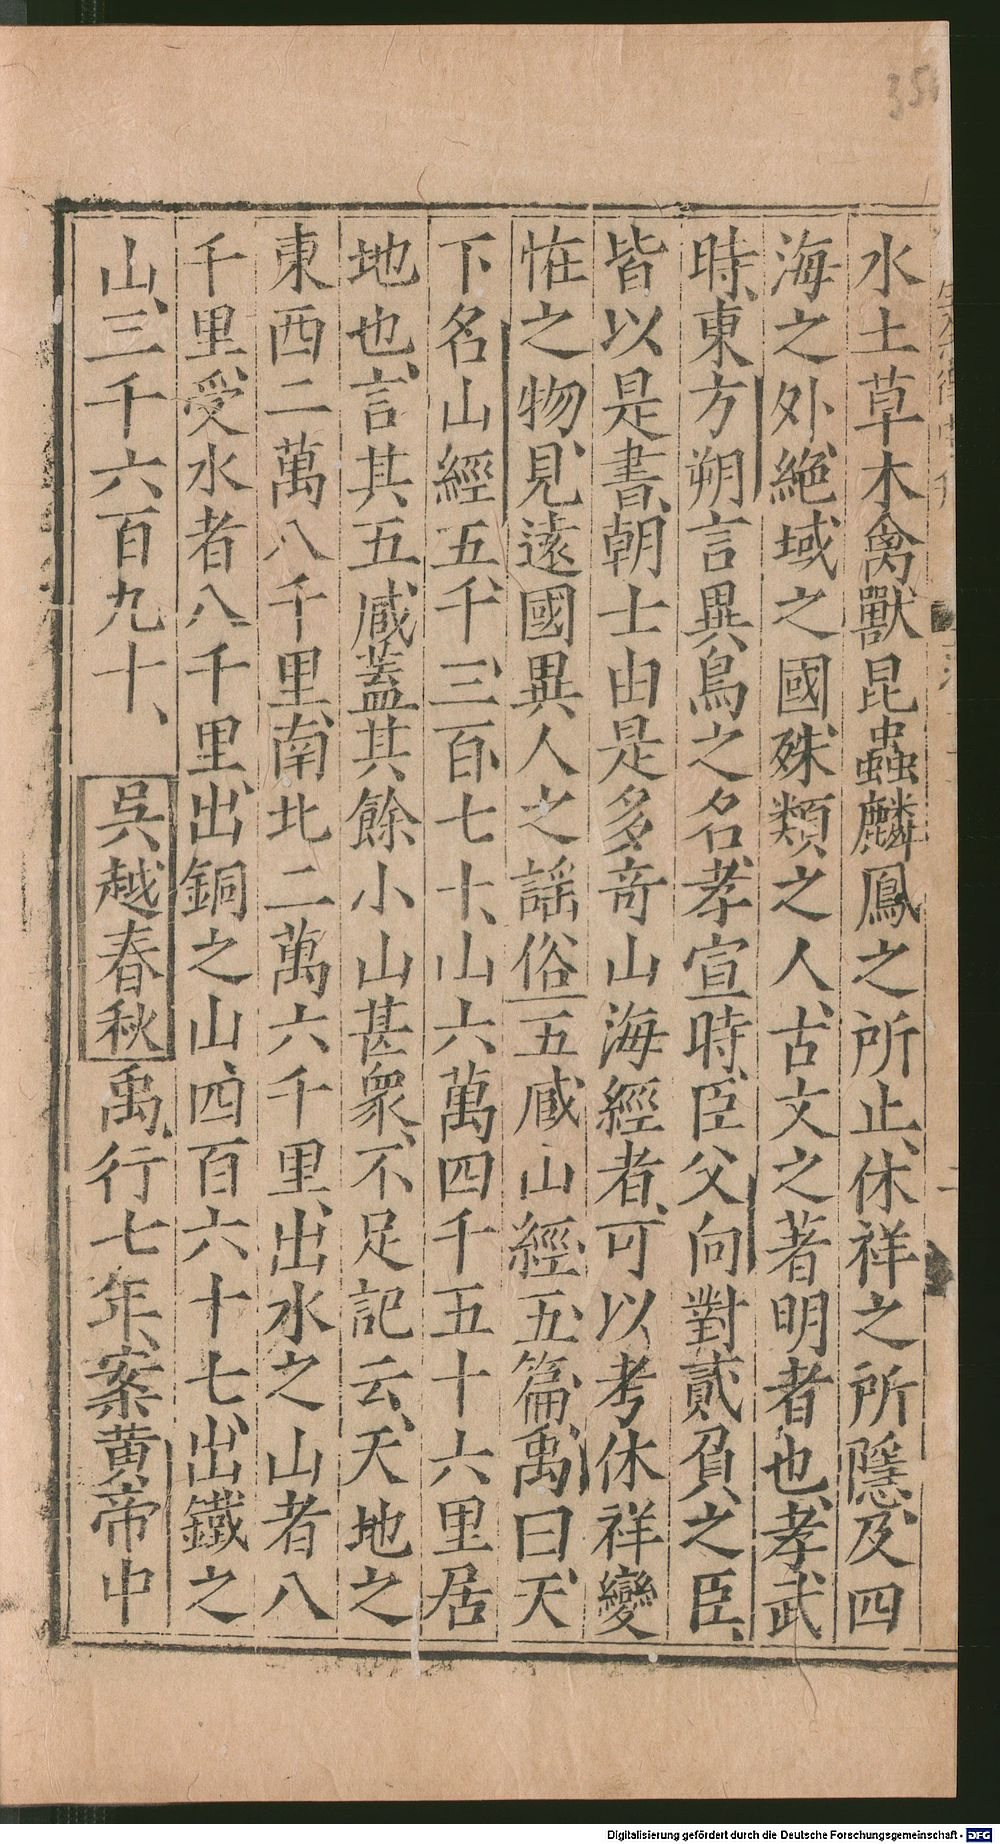 水土草木禽獸昆蟲麟鳳之所止、休祥之所隱、及四
海之外、絶域之國、殊類之人、古文之著明者也、孝武
時、東方朔言異鳥之名、孝宣時、臣父向對貳負之臣、
皆以是書、朝士由是多竒山海經者、可以考休祥變
恠之物、見遠國異人之謡俗 五臧山經、五篇、禹曰、天
下名山經五、千、三、百、七十、山六萬四千五十六里居
地也、言其五臧、蓋其餘小山甚衆、不足記云、天地之
東西二萬八千里、南北二萬六千里、出水之山者八
千里、受水者八千里、出銅之山、四百六十七、出鐵之
山、三千六百九十、吳越春秋禹、行七年、案黄帝中
35
Digitalisierung gefördert durch die Deutsche Forschungsgemeinschaft - DFG